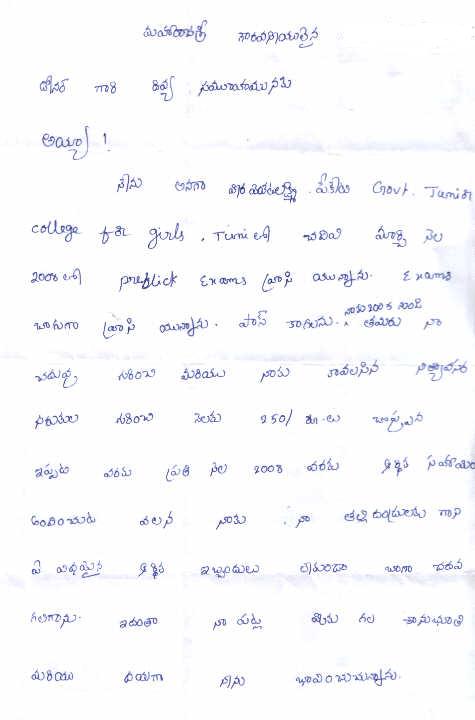 మహారాజశ్రీ గౌరవనీయులైన
డోనర్ గారి దివ్య సముఖమునకు
అయ్యా !
నేను అనగా విజయలక్ష్మి. మీకు Govt. Junior
college for girls, Tuni లో చదివి మార్చి నెల
2008 లో preflick Exams వ్రాసి యున్నాను. Exams
బాగుగా వ్రాసి యున్నాను. పాస్ కాగలను. నాకు 200 కి తమరు నా
చదువు గురించి మరియు నాకు కావలసిన నిత్యావసర
సరుకుల గురించి నెలకు 250/ రూ.లు చొప్పున
ఇప్పటి వరకు ప్రతి నెల 2008 వరకు ఆర్థిక సహాయం
అందించుట వలన నాకు, నా తల్లిదండ్రులకు గాని
ఏ విధమైన ఆర్థిక ఇబ్బందులు లేకుండా బాగా చదువ
గలిగాను. ఇదంతా నా పట్ల మీకు గల సానుభూతి
మరియు దయగా నేను భావించుచున్నాను.